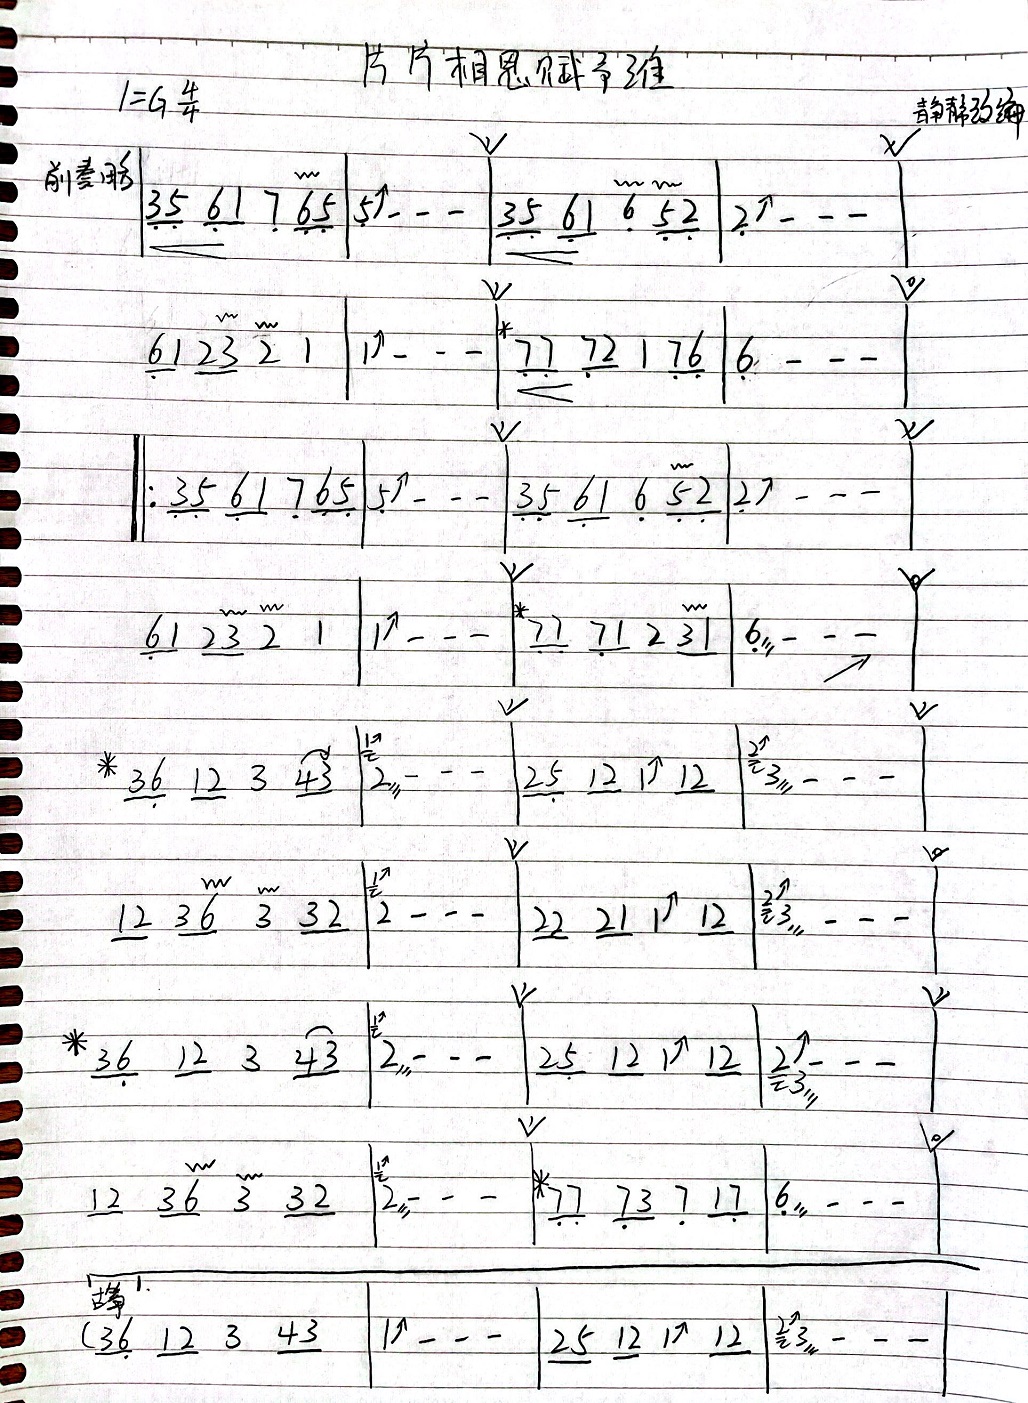 片片相思赋予谁
1=G 4/4
静静改编
前奏略 | 35 61 7 65 | 5↗ - - - | 35 61 6 52 | 2↗ - - - |
61 23 2 1 | 1↗ - - - | *77 72 1 76 | 6 - - - |
‖: 35 61 7 65 | 5↗ - - - | 35 61 6 52 | 2↗ - - - |
61 23 2 1 | 1↗ - - - | *77 71 2 31 | 6 - - - |
* 36 12 3 43 | 1↗ 2 - - - | 25 12 1↗ 12 | 2↗ 3 - - - |
12 36 3 32 | 1↗ 2 - - - | 22 21 1↗ 12 | 2↗ 3 - - - |
* 36 12 3 43 | 1↗ 2 - - - | 25 12 1↗ 12 | 2↗ 3 - - - |
12 36 3 32 | 1↗ 2 - - - | *77 73 7 17 | 6 - - - |
古筝
(36 12 3 43 | 1↗ - - - | 25 12 1↗ 12 | 2↗ 3 - - - |